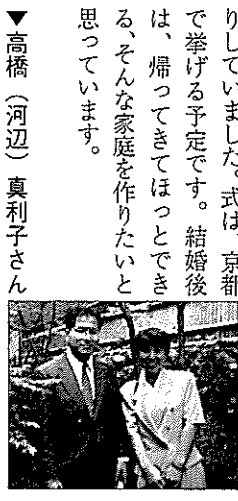 りしていました。式は、京都
で挙げる予定です。結婚後
は、帰ってきてほっとでき
る、そんな家庭を作りたいと
思っています。
▼高橋（河辺）真利子さん